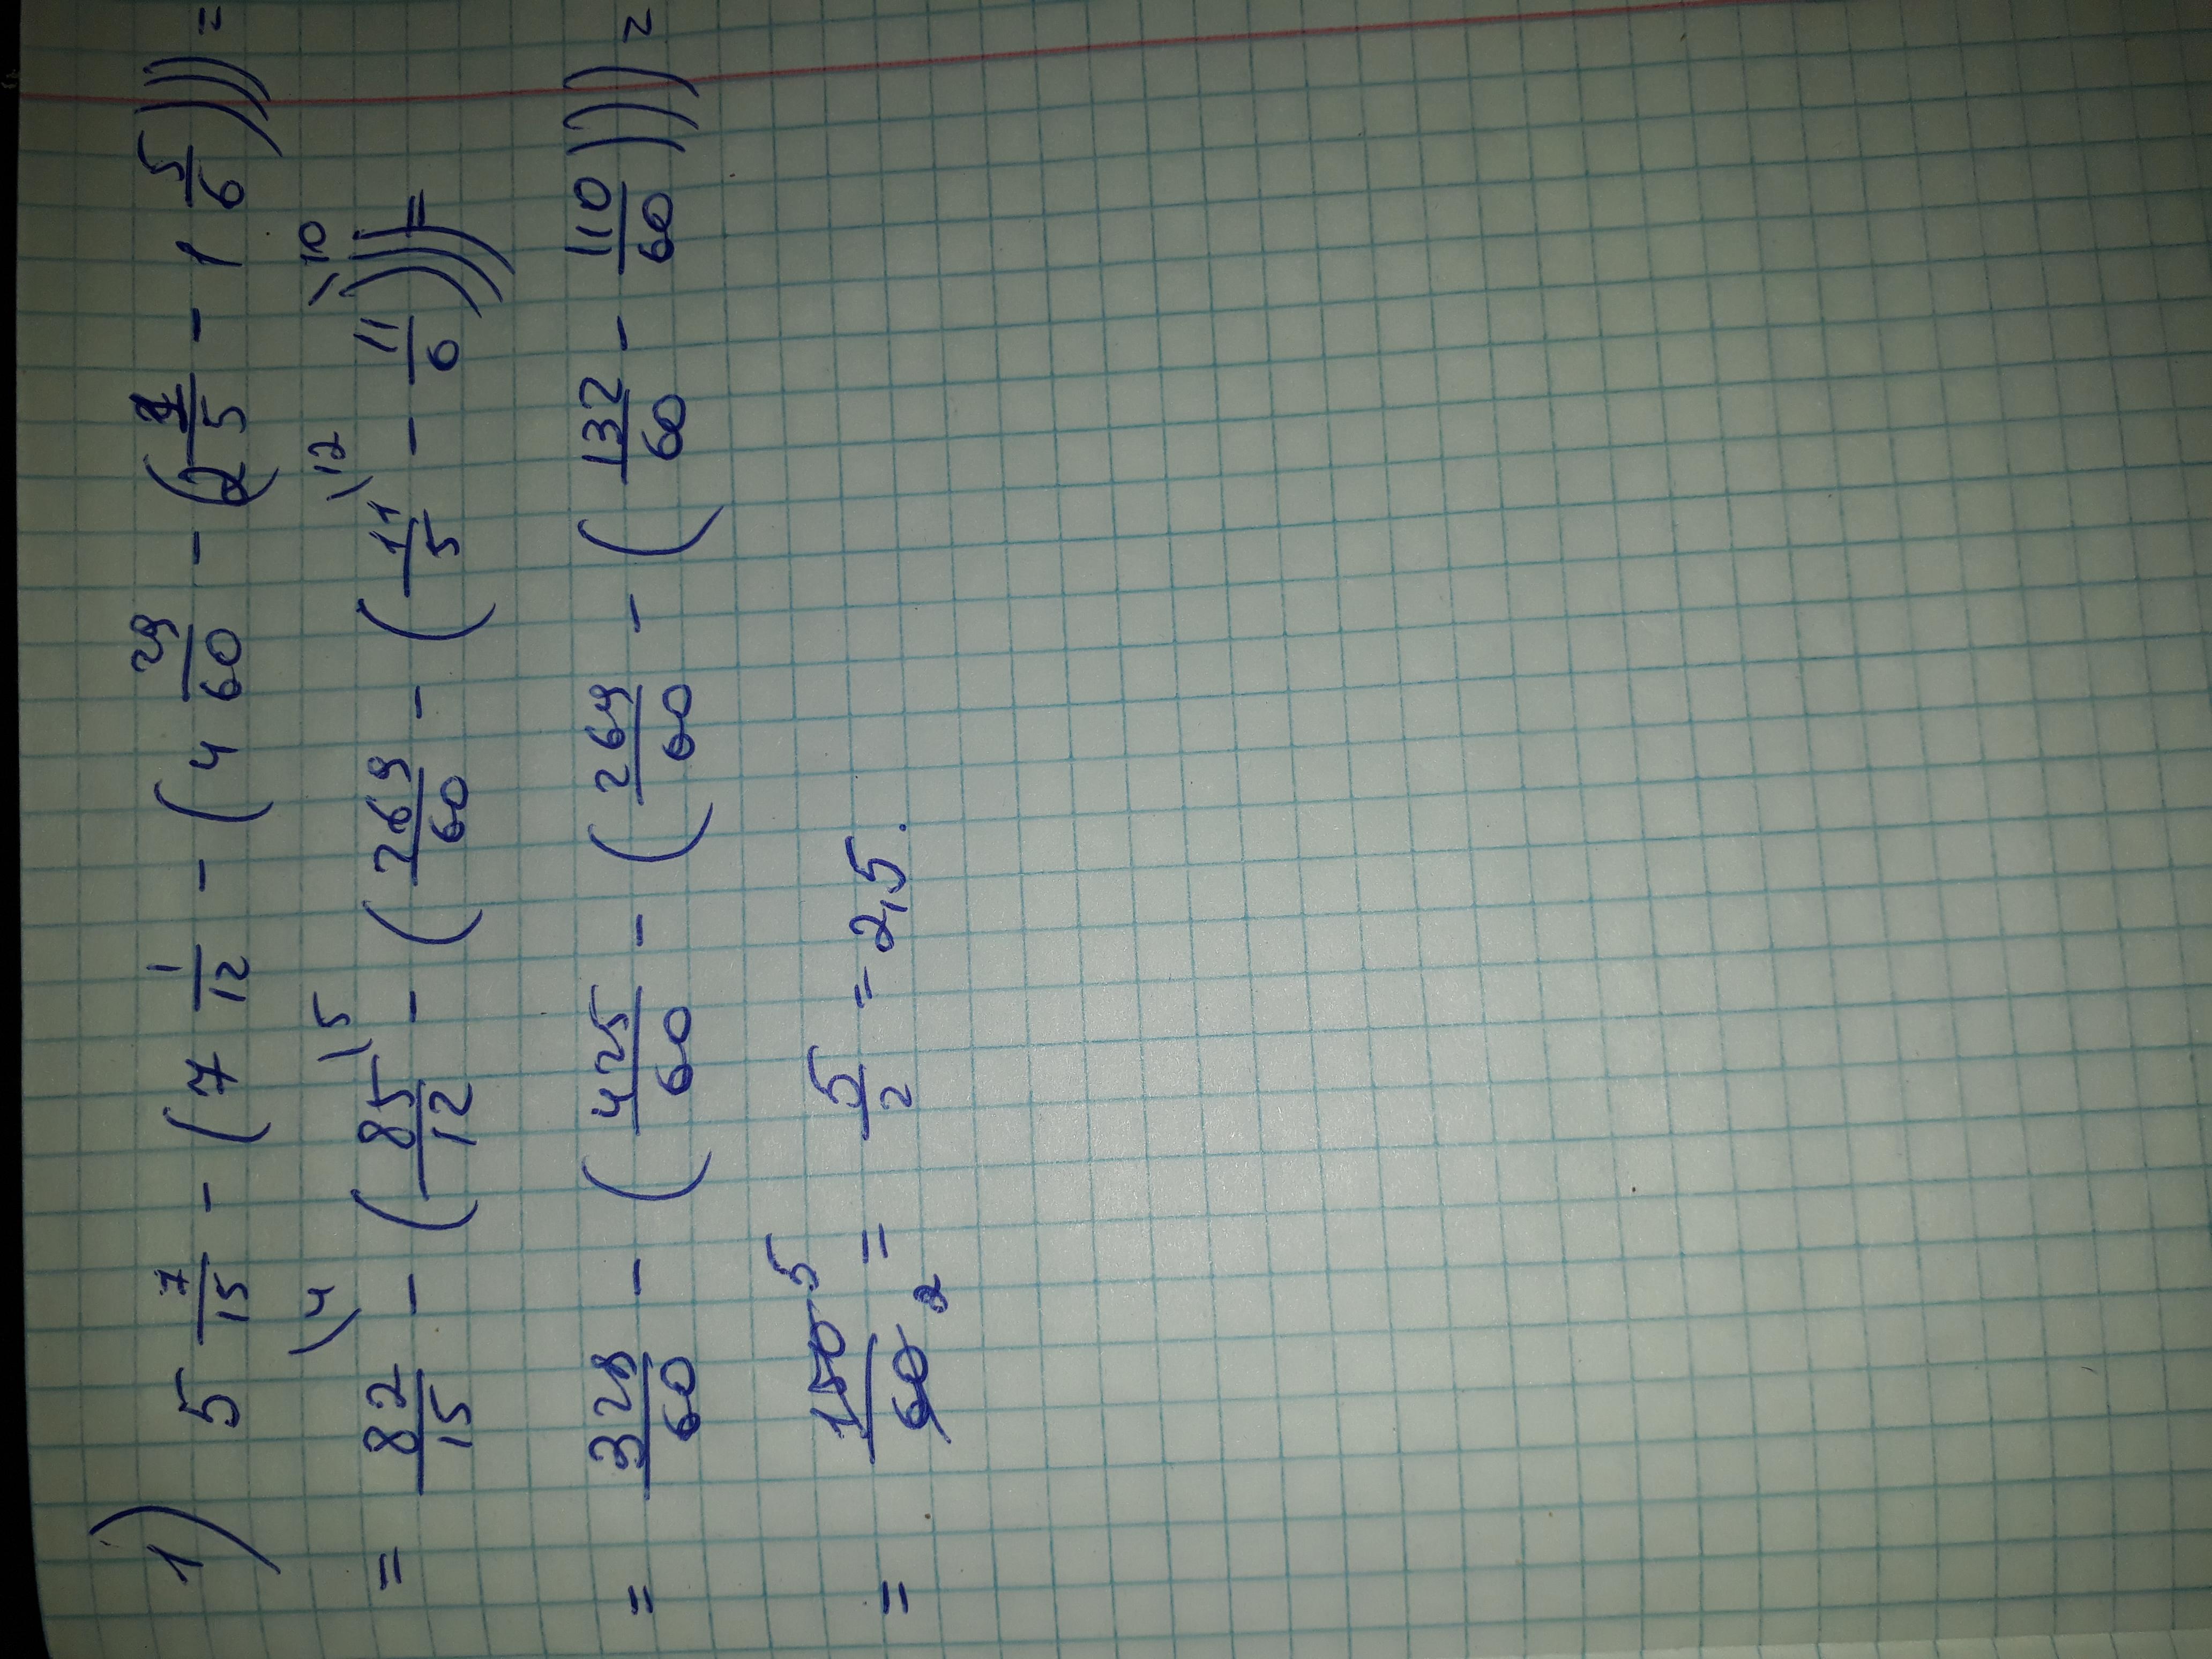 1) 5 7/15 - (7 1/12 - (4 29/60 - (2 1/5 - 1 5/6))) =
= 82/15 \4 - (85/12 \5 - (269/60 - (11/5 \12 - 11/6 \10))) =
= 328/60 - (425/60 - (269/60 - (132/60 - 110/60))) =
= 150/60 5 2 = 5/2 = 2,5.